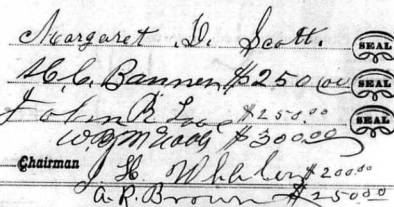 Margaret D. Scott. SEAL
H.C. Bannen $250.00 SEAL
John R $250.00 SEAL
$300.00
Chairman
J. H. Whalen $200.00
A. R. Brown $250.00